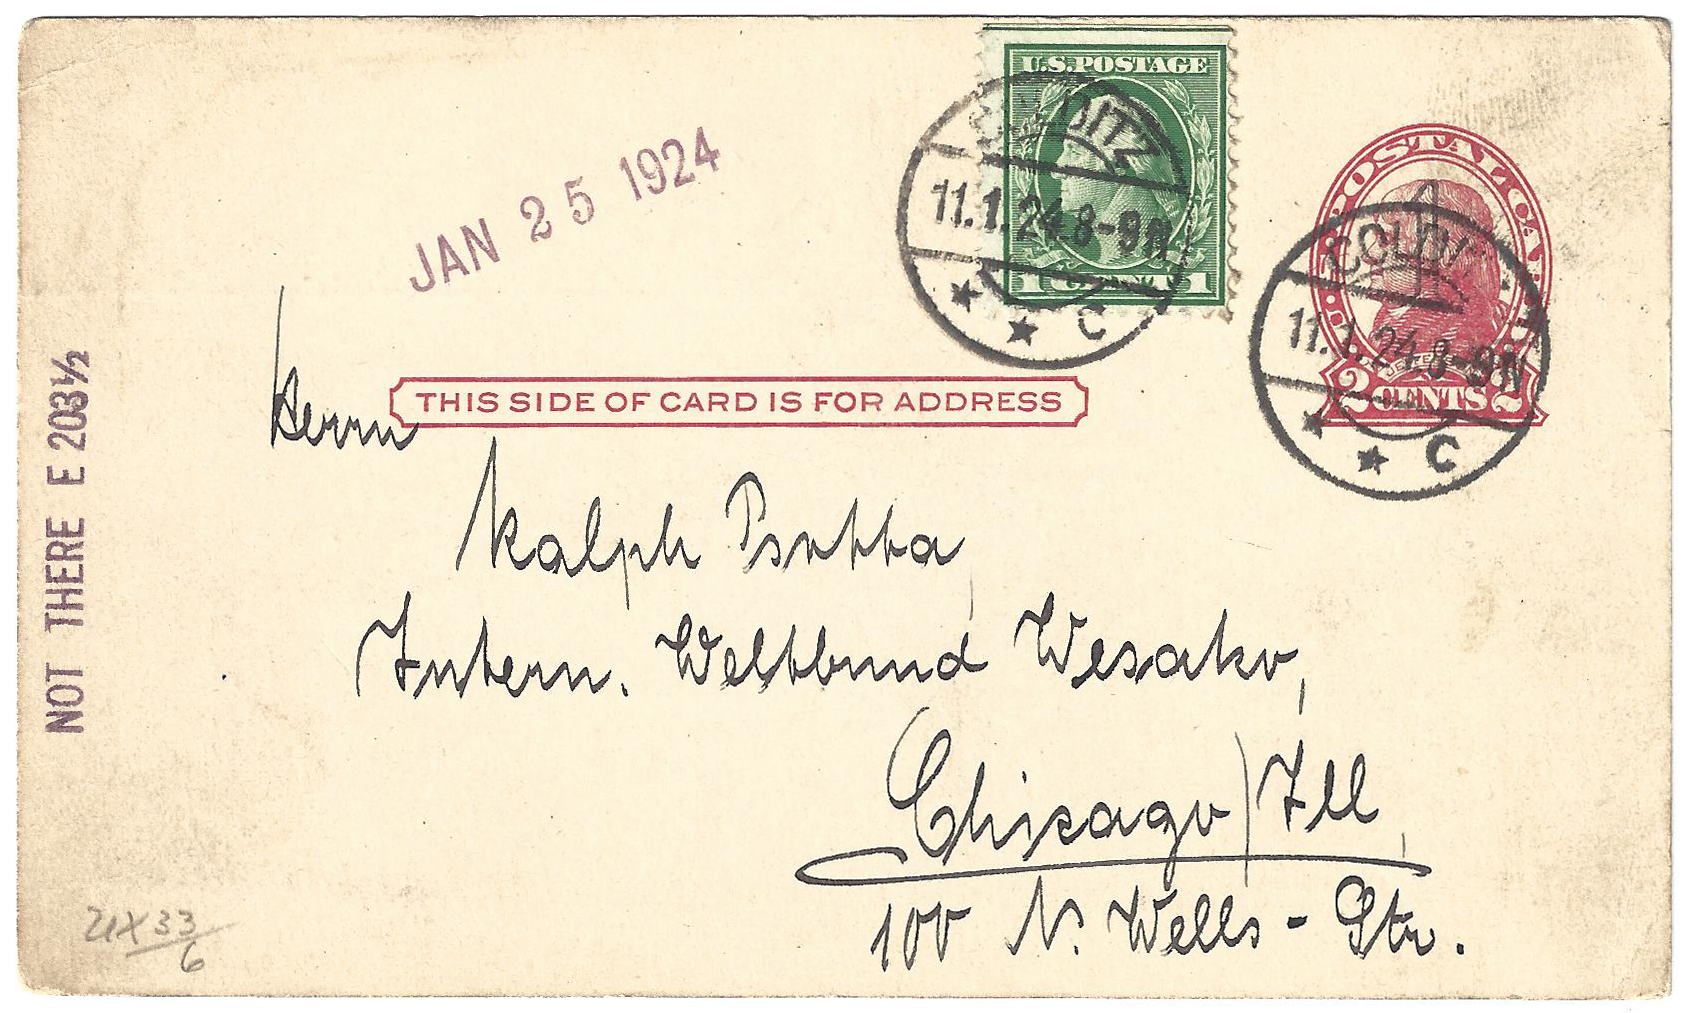 U.S. POSTAGE
1 CENT 1
COLDITZ
11.1.24.8-9N
C
U.S. POSTAL CARD
JEFFERSON
2 CENTS 2
COLDITZ
11.1.24.8-9N
C
JAN 25 1924
NOT THERE E 203½
THIS SIDE OF CARD IS FOR ADDRESS
Herrn
Ralph Psotta
Intern. Weltbund Wesako,
Chicago/Ill,
100 N. Wells-Str.
UX33
6